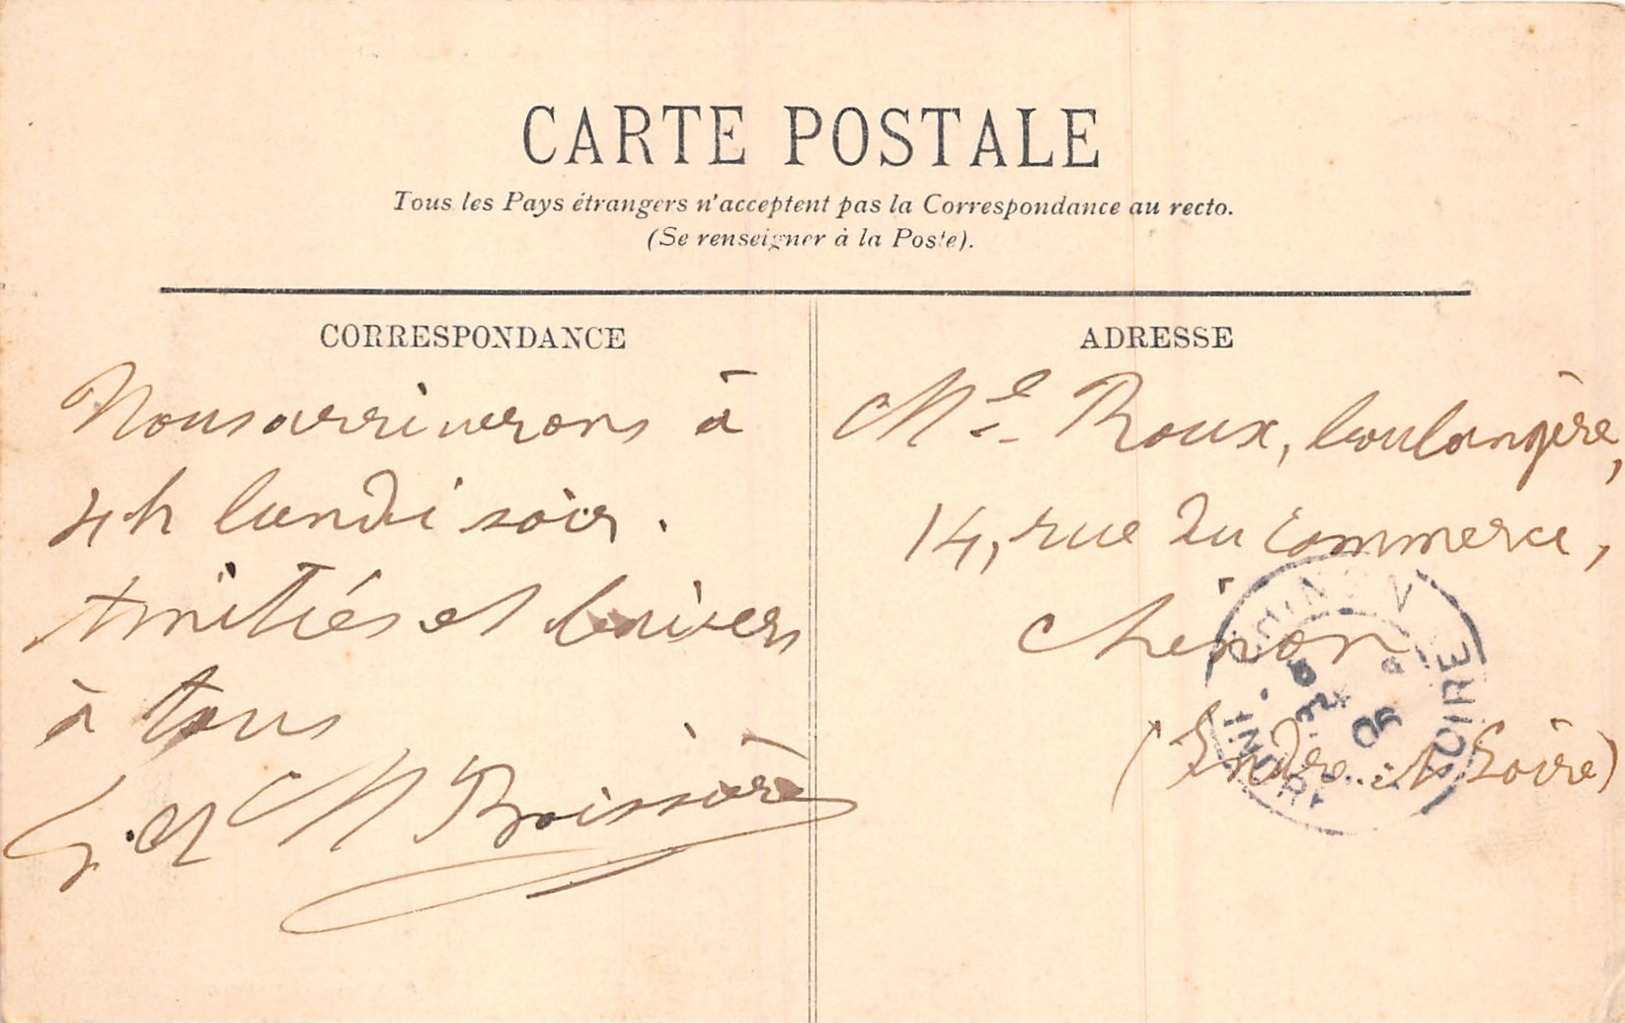 CARTE POSTALE
Tous les Pays étrangers n'acceptent pas la Correspondance au recto.
(Se renseigner à la Poste).
CORRESPONDANCE
Nous arriverons à
4h lundi soir.
Amitiés et baisers
à tous
G. et M Boissière
ADRESSE
Me Roux, boulangère,
14, rue du Commerce,
Chinon
(Indre-et-Loire)
CHINON
INDRE-ET-LOIRE